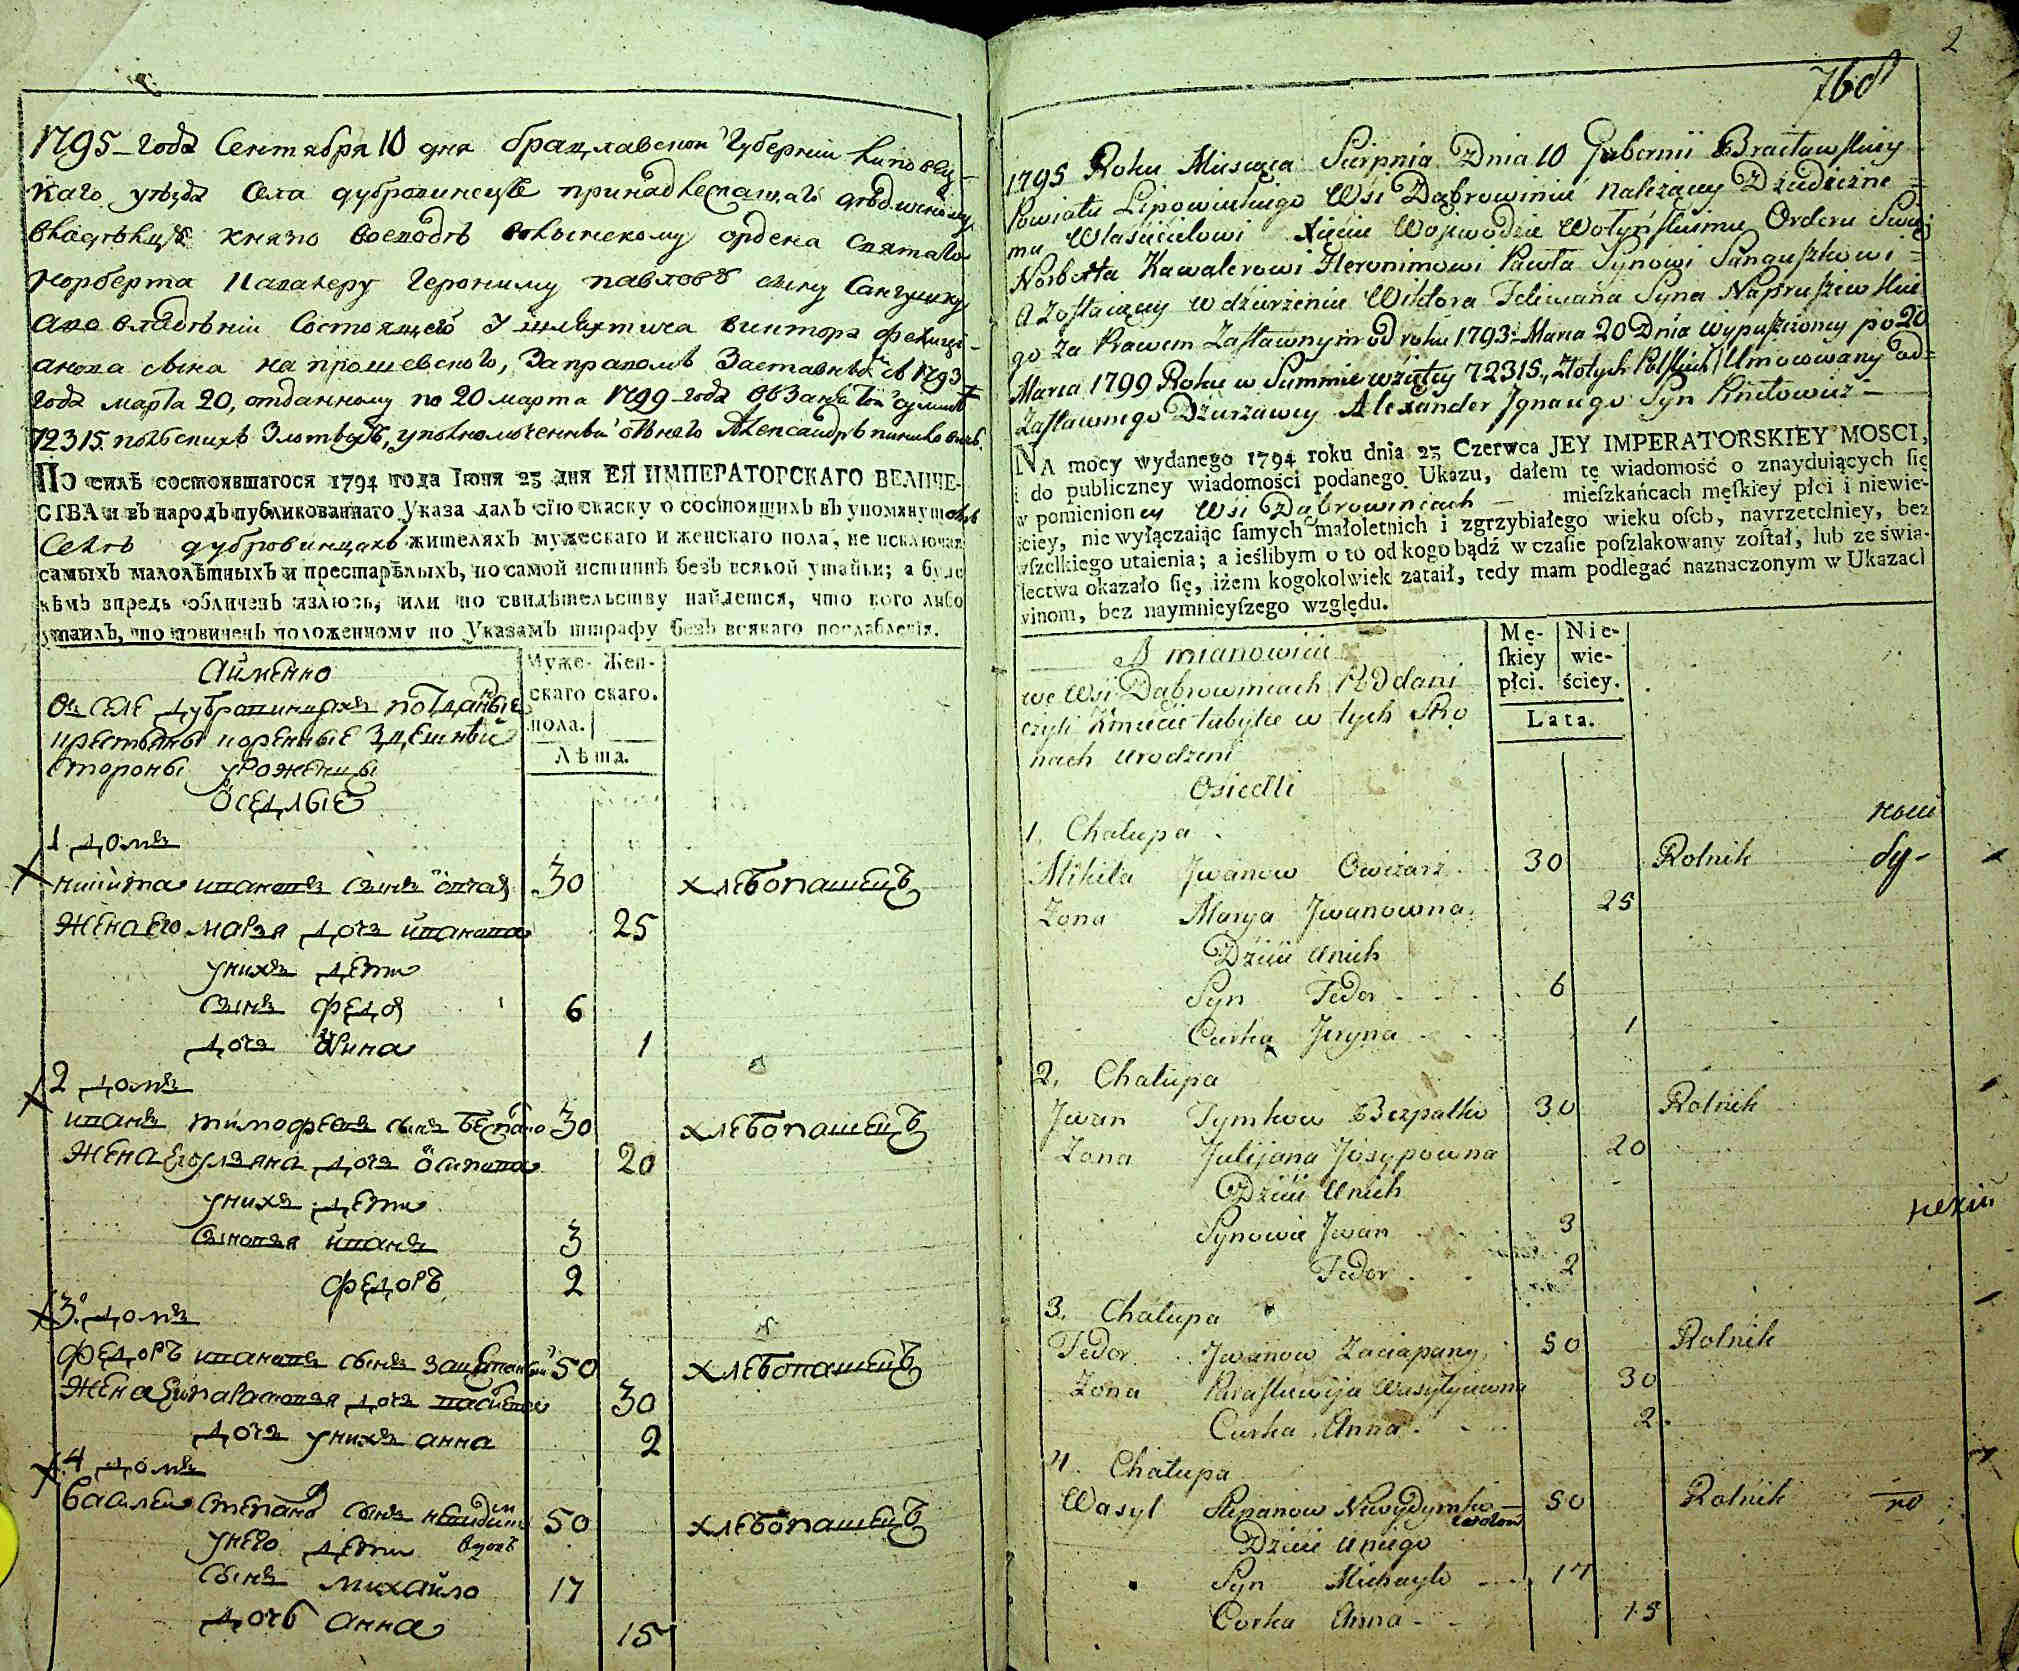 1795 года Сентября 10 дня брацлавской Губерніи Липовец-
каго уезда Села дубровинецъ принадлежащаго дѣдичному
владѣльцу князю воеводѣ волынскому ордена Святаго
Норберта Кавалеру Герониму павлову сыну Сангушку
а во владѣніи Состоящего у шляхтича виктора фелици-
анова сына напрошевского, За правомъ Заставнымъ съ 1793
года марта 20, отданному по 20 марта 1799 года въ сумме
72315 польскихъ Злотыхъ, уполномоченный отъ него Александръ
ПО силѣ состоявшагося 1794 года Іюня 23 дня ЕЯ ИМПЕРАТОРСКАГО ВЕЛИЧЕ-
СТВА и въ народъ публикованнаго Указа далъ сїю скаску о состоящихъ въ упомянутомъ
Селѣ дубровинцахъ жителяхъ мужескаго и женскаго пола, не исключая
самыхъ малолѣтныхъ и престарѣлыхъ, по самой истиннѣ безъ всякой утайки; а буде
кѣмъ впредь обличенъ явлюсь, или по свидѣтельству найдется, что кого либо
утаилъ, то повиненъ положенному по Указамъ штрафу безъ всякаго послабленїя.
Аймѣнно
Въ селе дубровинцахъ подданые
крестьяны коренные здешнѣй
стороны уроженцы
оседлые
Муже-
скаго
пола.
Жен-
скаго.
Лѣта.
1 домъ
никита ивановъ сынъ 30 хлебопашецъ
жена его марья дочь иванова 25
унихъ дети
сынъ федор 6
дочь 1
2 домъ
иванъ тимофеевъ сынъ 30 хлебопашецъ
жена его улияна дочь осипова 20
унихъ дети
сыновья иванъ 3
федоръ 2
3. домъ
федоръ ивановъ сынъ 50 хлебопашецъ
жена его парасковья дочь 30
дочь унихъ анна 2
4 домъ
василей степанов сынъ 50 хлебопашецъ
вдовъ
унего дети
сынъ михайло 17
дочь анна 15
2
768
1795 Roku Miesiąca Sierpnia Dnia 10 Gubernii Bracławskiey
Powiatu Lipowieckiego Wsi Dąbrowiniec Należącey Dziedziczne=
mu Właścicielowi Xięciu Wojewodzie Wołyńskiemu Orderu Swię
Norberta Kawalerowi Heronimowi Pawła Synowi Sanguszkowi=
a zostaiącey w dzierżeniu Wiktora Feliciana Syna Napruszewskie
go za Prawem Zastawnym od roku 1793: Marca 20 Dnia wypuszczoney po 20
Marca 1799 Roku w Summie wziętey 72315, Złotych Polskich Umocowany od=
Zastawnego Dzierżawcy Alexander Jgnacego Syn
NA mocy wydanego 1794 roku dnia 23 Czerwca JEY IMPERATORSKIEY MOSCI,
i do publiczney wiadomości podanego Ukazu, dałem tę wiadomość o znayduiących się
w pomienioney Wsi Dąbrowincach mieſzkańcach męſkiey płci i niewie-
ściey, nie wyłączaiąc ſamych małoletnich i zgrzybiałego wieku oſob, nayrzetelniey, bez
wſzelkiego utaienia; a ieślibym o to od kogo bądź w czaſie poſzlakowany zoſtał, lub ze świa-
dectwa okazało się, iżem kogokolwiek zataił, tedy mam podlegać naznaczonym w Ukazach
winom, bez naymnieyſzego względu.
A mianowicie
we Wsi Dąbrowincach Poddani
czyli Kmiecie tubylce w tych Stro
nach urodzeni
Osiedli
Mę-
ſkiey
płci.
Nie-
wie-
ściey.
Lata.
1. Chałupa
Mikita Jwanow Owczarz 30 Rolnik
Zona Marya Jwanowna 25
Dzieci unich
Syn Fedor 6
Curka Jryna 1
2. Chałupa
Jwan Tymkow Bezpałko 30 Rolnik
Zona Julijana Josypowna 20
Dzieci unich
Synowie Jwan 3
Fedor 2
3. Chałupa
Fedor Jwanow Zaciapany 50 Rolnik
Zona Paraskewija Wasylijewna 30
Curka Anna 2
4. Chałupa
Wasyl Stepanow Niewydymko 50 Rolnik
Dzieci uniego
Syn Michayło 17
Corka Anna 15